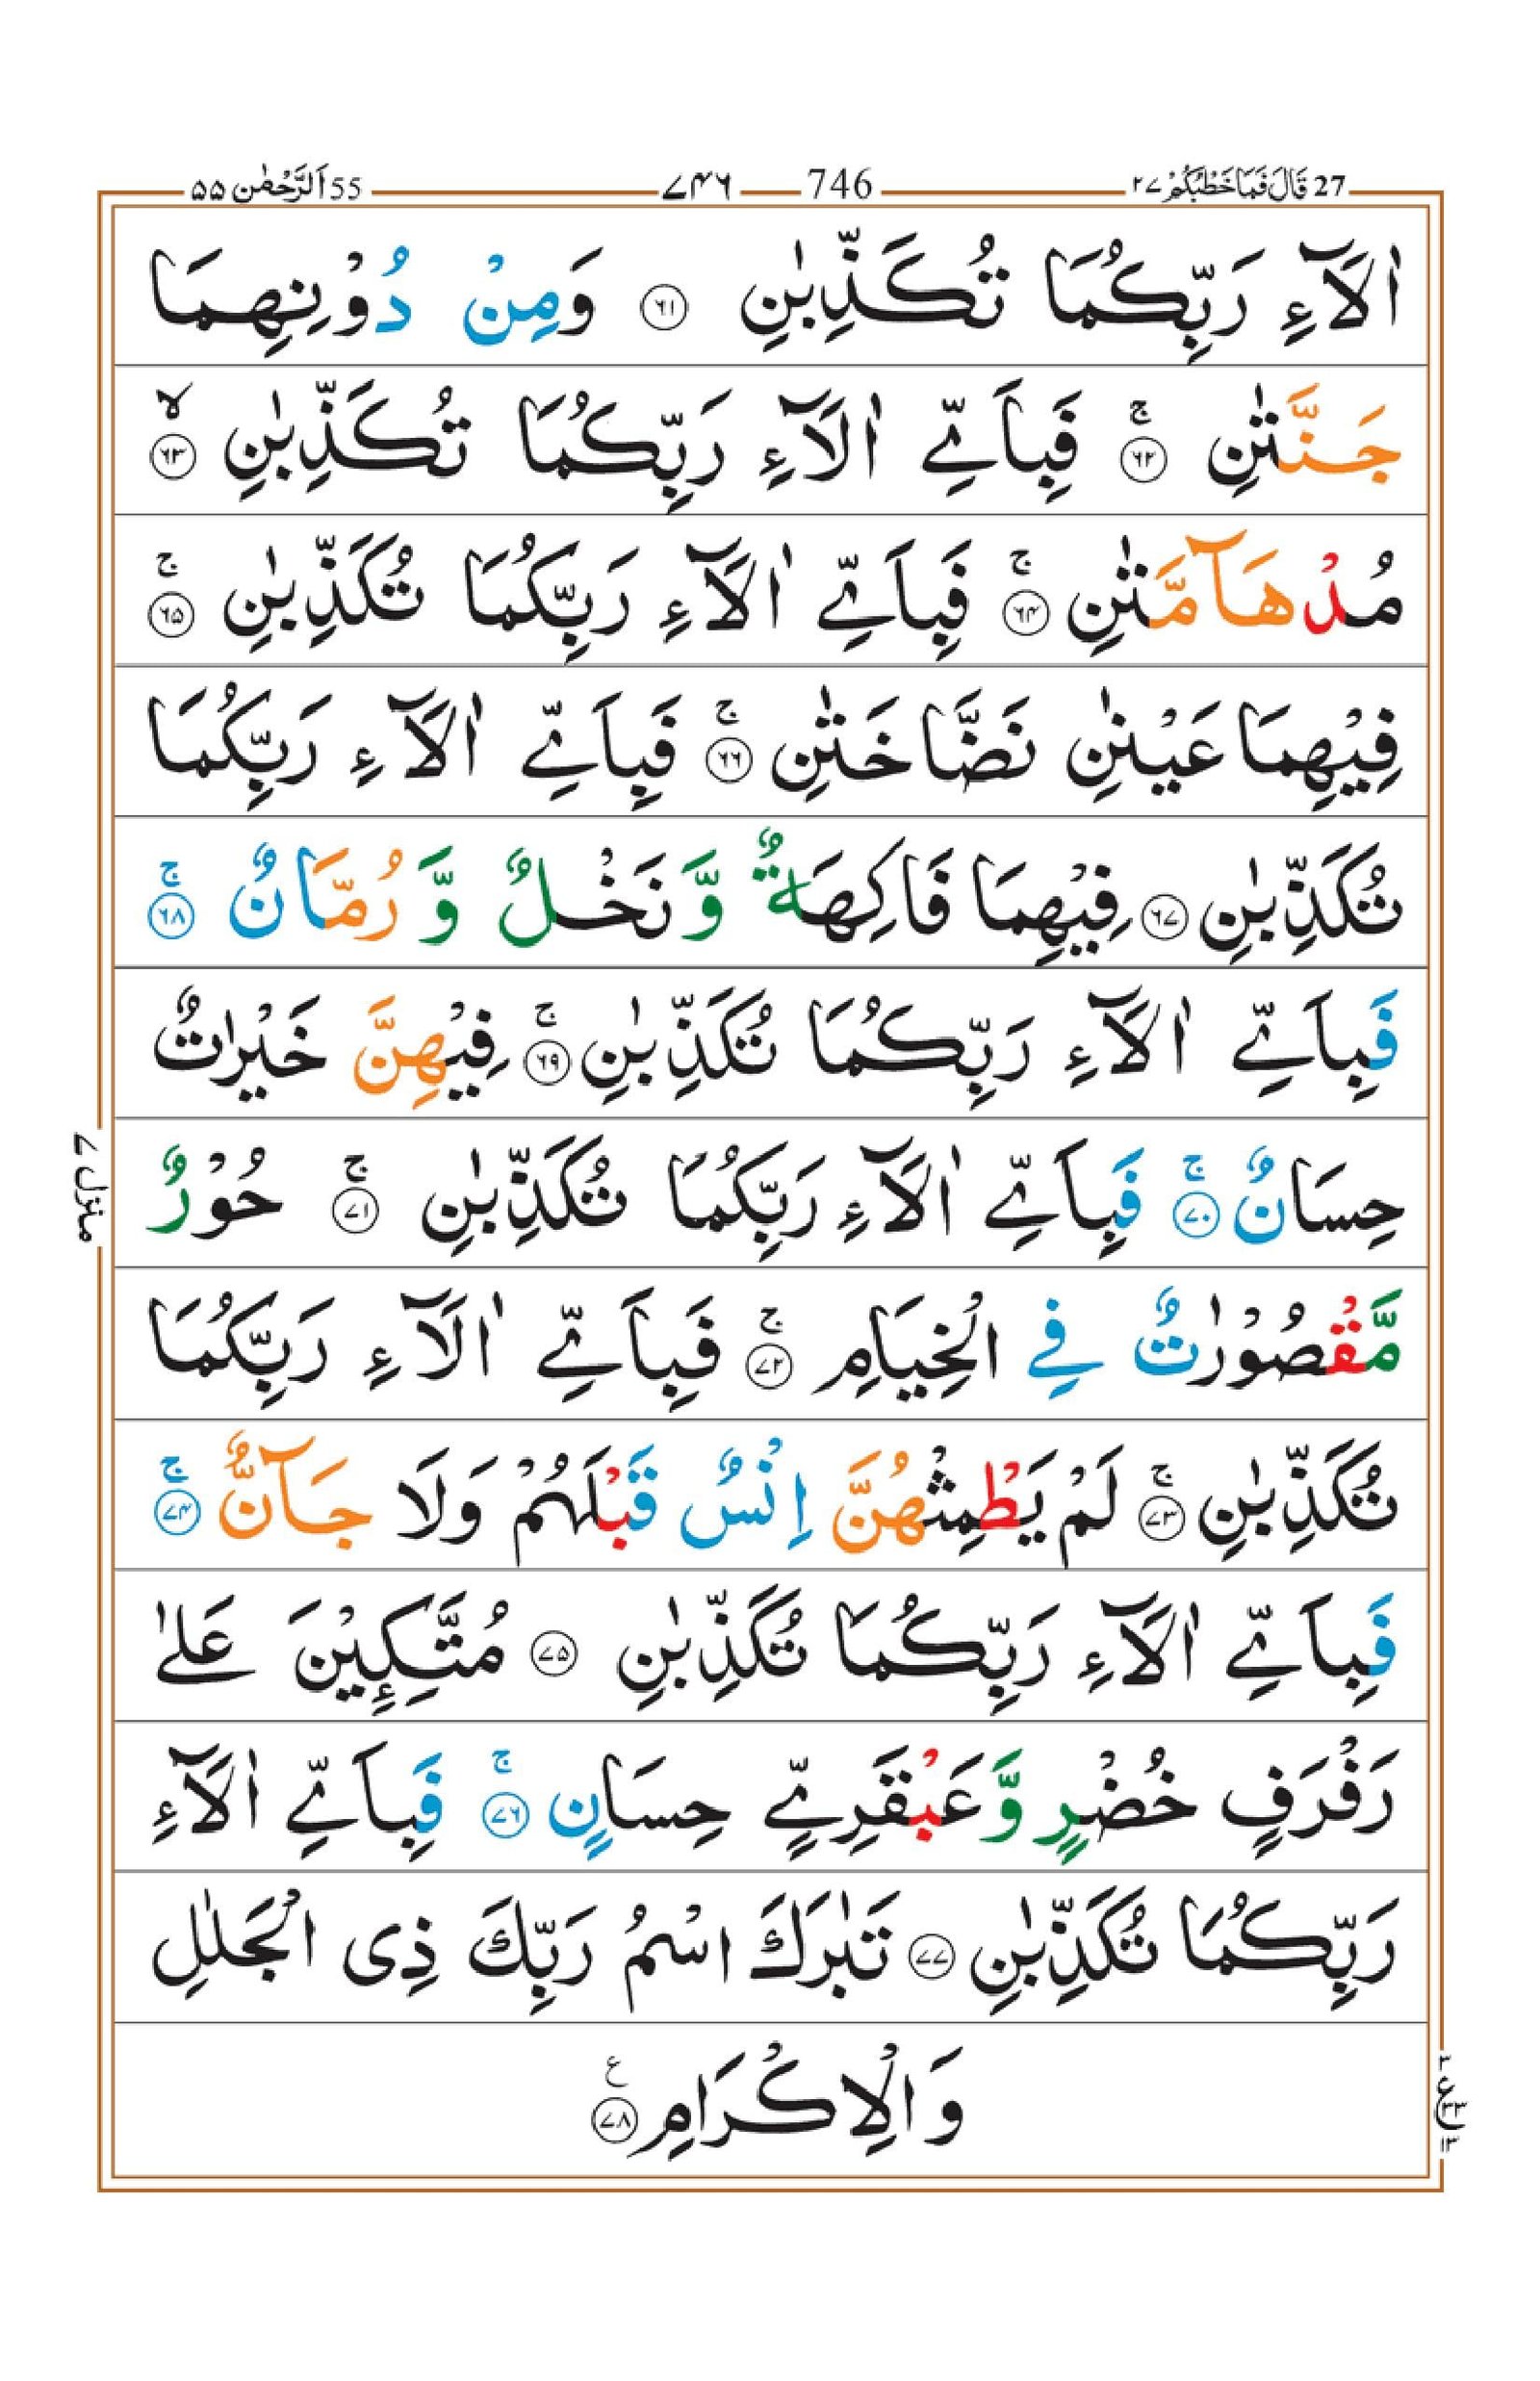 27 قَالَ فَمَا خَطْبُكُمْ ۲۷ 746 ۷۴۶ 55 اَلرَّحْمٰن ۵۵
اٰلَآءِ رَبِّكُمَا تُكَذِّبٰنِ ۶۱ وَمِنْ دُوْنِهِمَا
جَنَّتٰنِ ۚ ۶۲ فَبِاَيِّ اٰلَآءِ رَبِّكُمَا تُكَذِّبٰنِ ۙ ۶۳
مُدْهَآمَّتٰنِ ۚ ۶۴ فَبِاَيِّ اٰلَآءِ رَبِّكُمَا تُكَذِّبٰنِ ۚ ۶۵
فِيْهِمَا عَيْنٰنِ نَضَّاخَتٰنِ ۚ ۶۶ فَبِاَيِّ اٰلَآءِ رَبِّكُمَا
تُكَذِّبٰنِ ۶۷ فِيْهِمَا فَاكِهَةٌ وَّ نَخْلٌ وَّ رُمَّانٌ ۚ ۶۸
فَبِاَيِّ اٰلَآءِ رَبِّكُمَا تُكَذِّبٰنِ ۚ ۶۹ فِيْهِنَّ خَيْرٰتٌ
حِسَانٌ ۚ ۷۰ فَبِاَيِّ اٰلَآءِ رَبِّكُمَا تُكَذِّبٰنِ ۚ ۷۱ حُوْرٌ
مَّقْصُوْرٰتٌ فِي الْخِيَامِ ۚ ۷۲ فَبِاَيِّ اٰلَآءِ رَبِّكُمَا
تُكَذِّبٰنِ ۚ ۷۳ لَمْ يَطْمِثْهُنَّ اِنْسٌ قَبْلَهُمْ وَلَا جَآنٌّ ۚ ۷۴
فَبِاَيِّ اٰلَآءِ رَبِّكُمَا تُكَذِّبٰنِ ۷۵ مُتَّكِـِٕيْنَ عَلٰى
رَفْرَفٍ خُضْرٍ وَّعَبْقَرِيٍّ حِسَانٍ ۚ ۷۶ فَبِاَيِّ اٰلَآءِ
رَبِّكُمَا تُكَذِّبٰنِ ۷۷ تَبٰرَكَ اسْمُ رَبِّكَ ذِى الْجَلٰلِ
وَالْاِكْرَامِ ۷۸ ع
منزل ۷